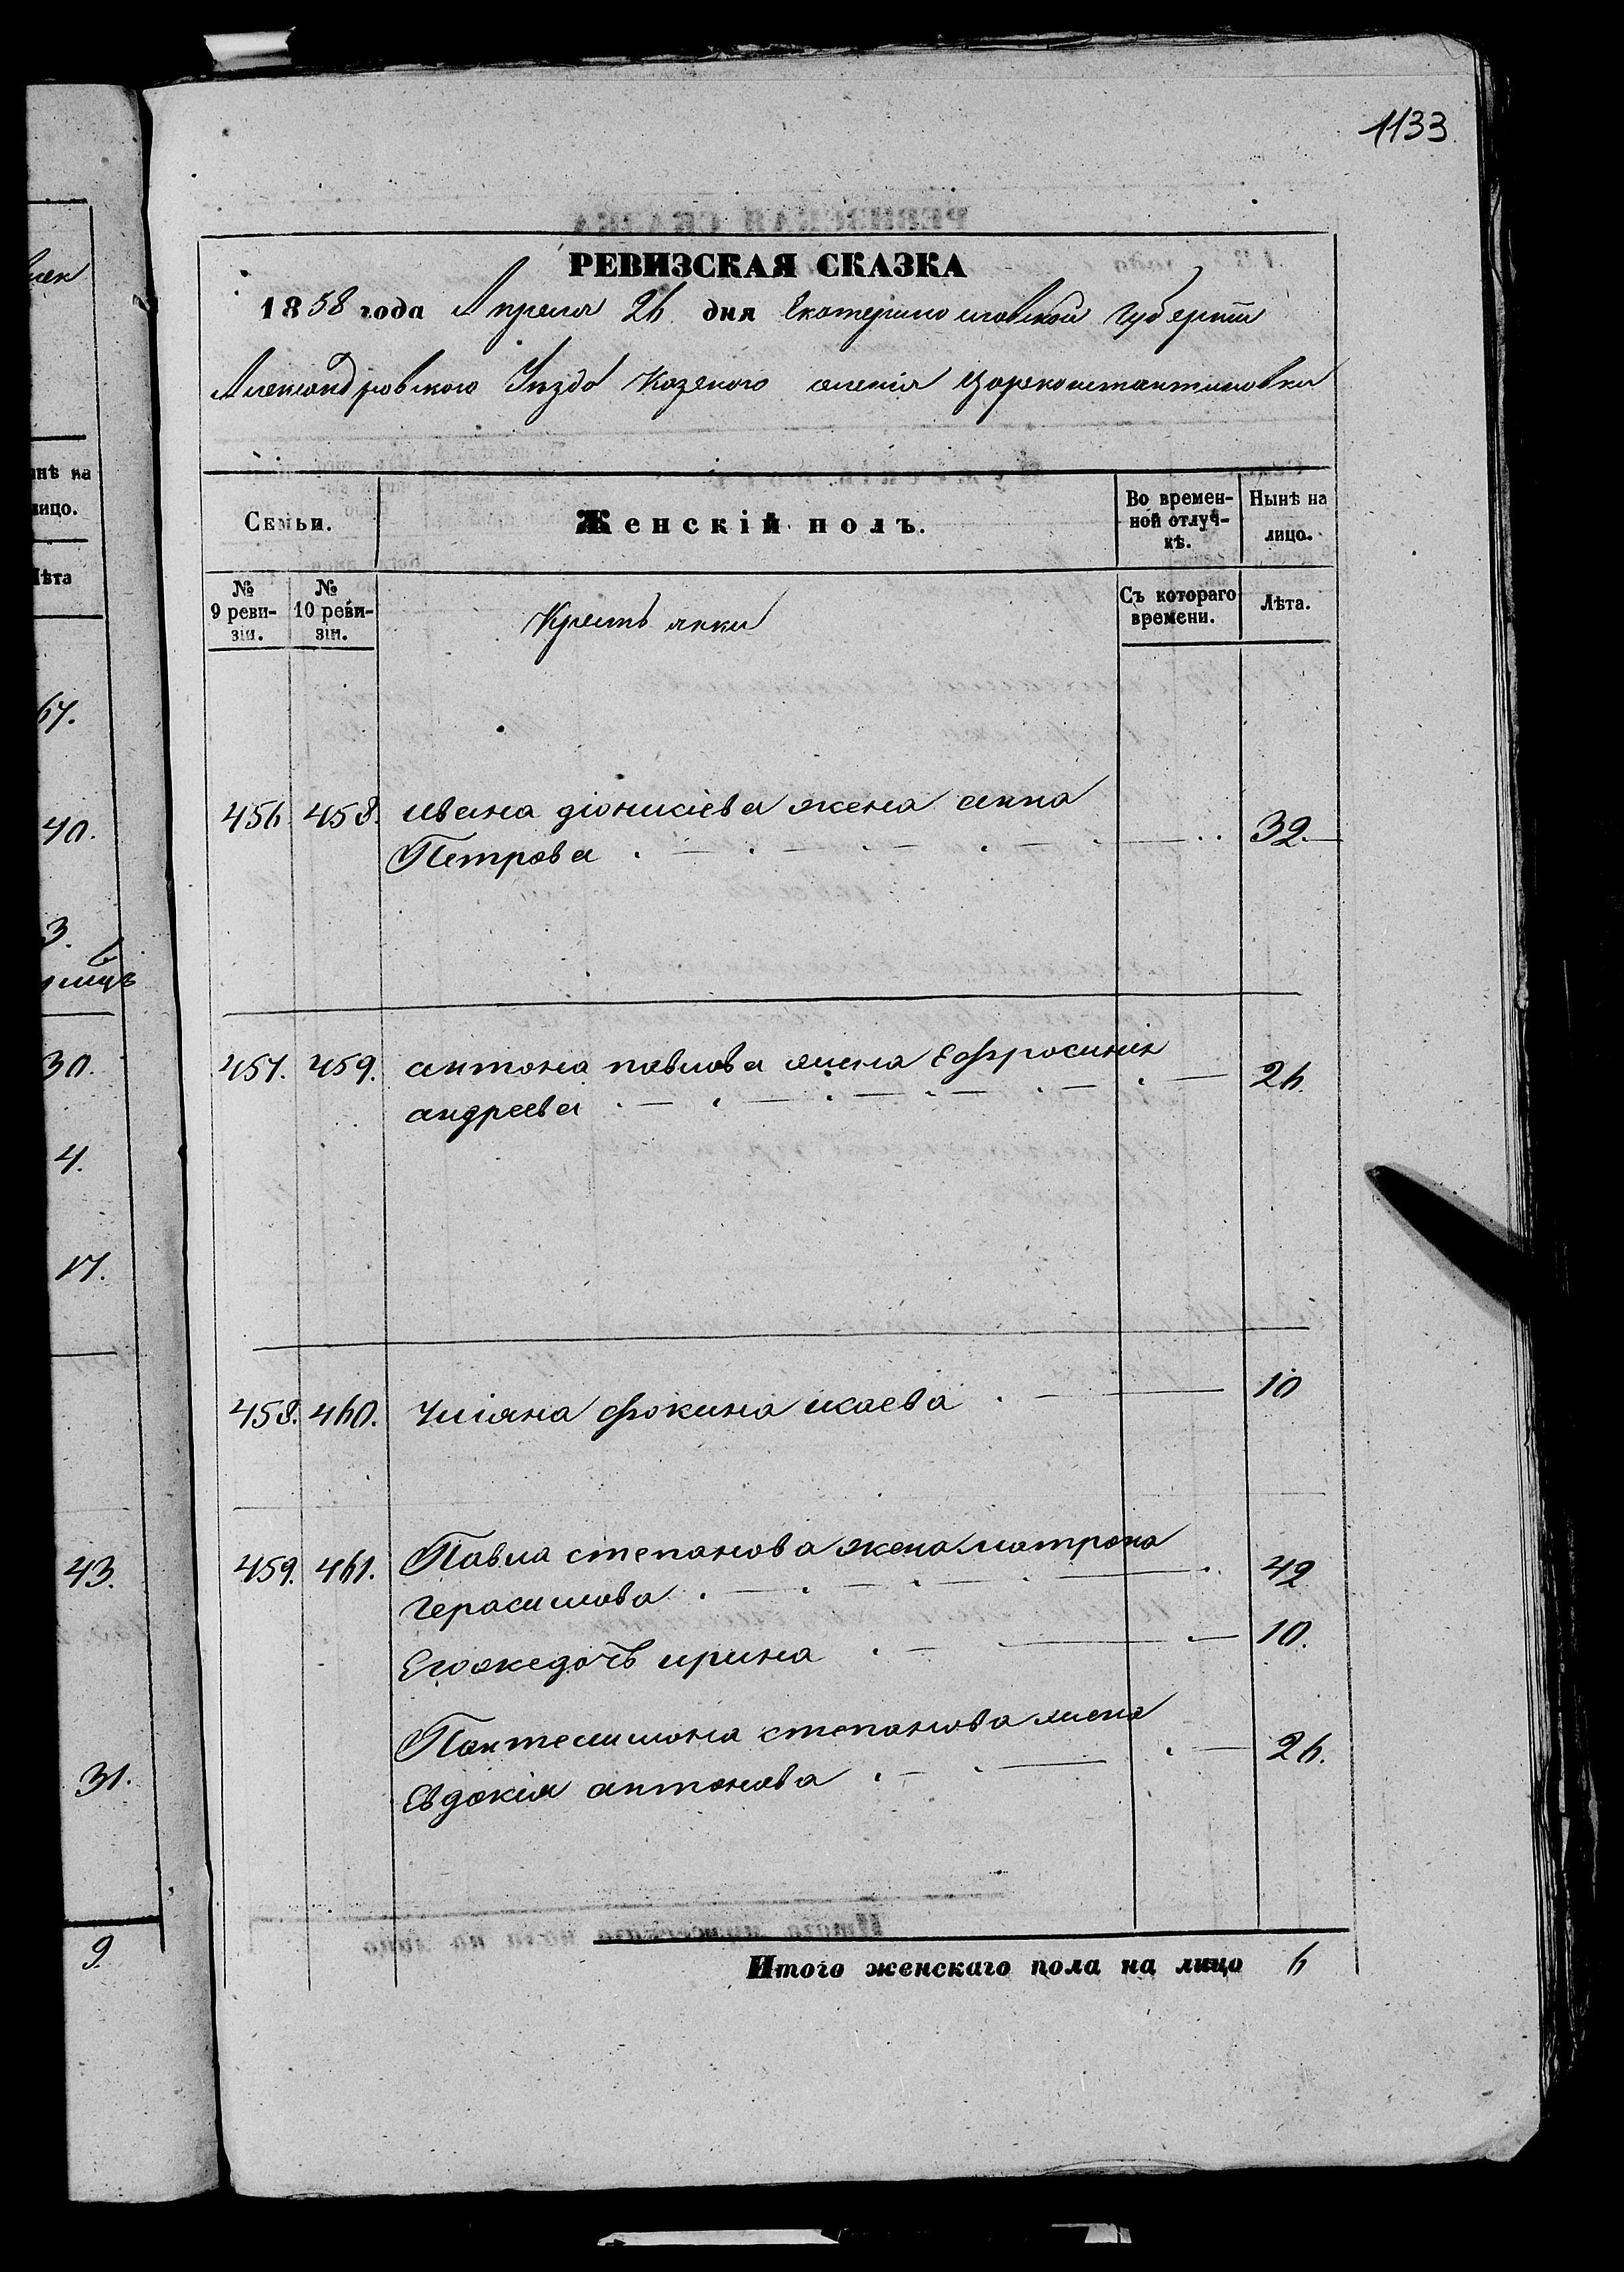 1133
РЕВИЗСКАЯ СКАЗКА
1858 года Апреля 26 дня Екатеринославской Губернии
Александровского Уезда Казеного селенія Цареконстантиновки
Семьи.
Женскій полъ.
Во времен-
ной отлуч-
кѣ.
Нынѣ на
лицо.
№
9 реви-
зіи.
№
10 реви-
зіи.
Крестьянки
Съ котораго
времени.
Лѣта.
456 458. ивана діонисіева жена анна
Петрова 32.
457. 459. антона павлова жена Ефросинія
андреева 26
458. 460. Уліяна фокина исаева 10
459. 461. Павла степанова жена матрона
Герасимова 42
Егожедочь ирина 10.
Пантелимона степанова жена
Евдокія антонова 26.
Итого женскаго пола на лицо 6
нѣ на
лицо.
Лѣта
67.
40.
3.
30.
4.
17.
43.
31.
9